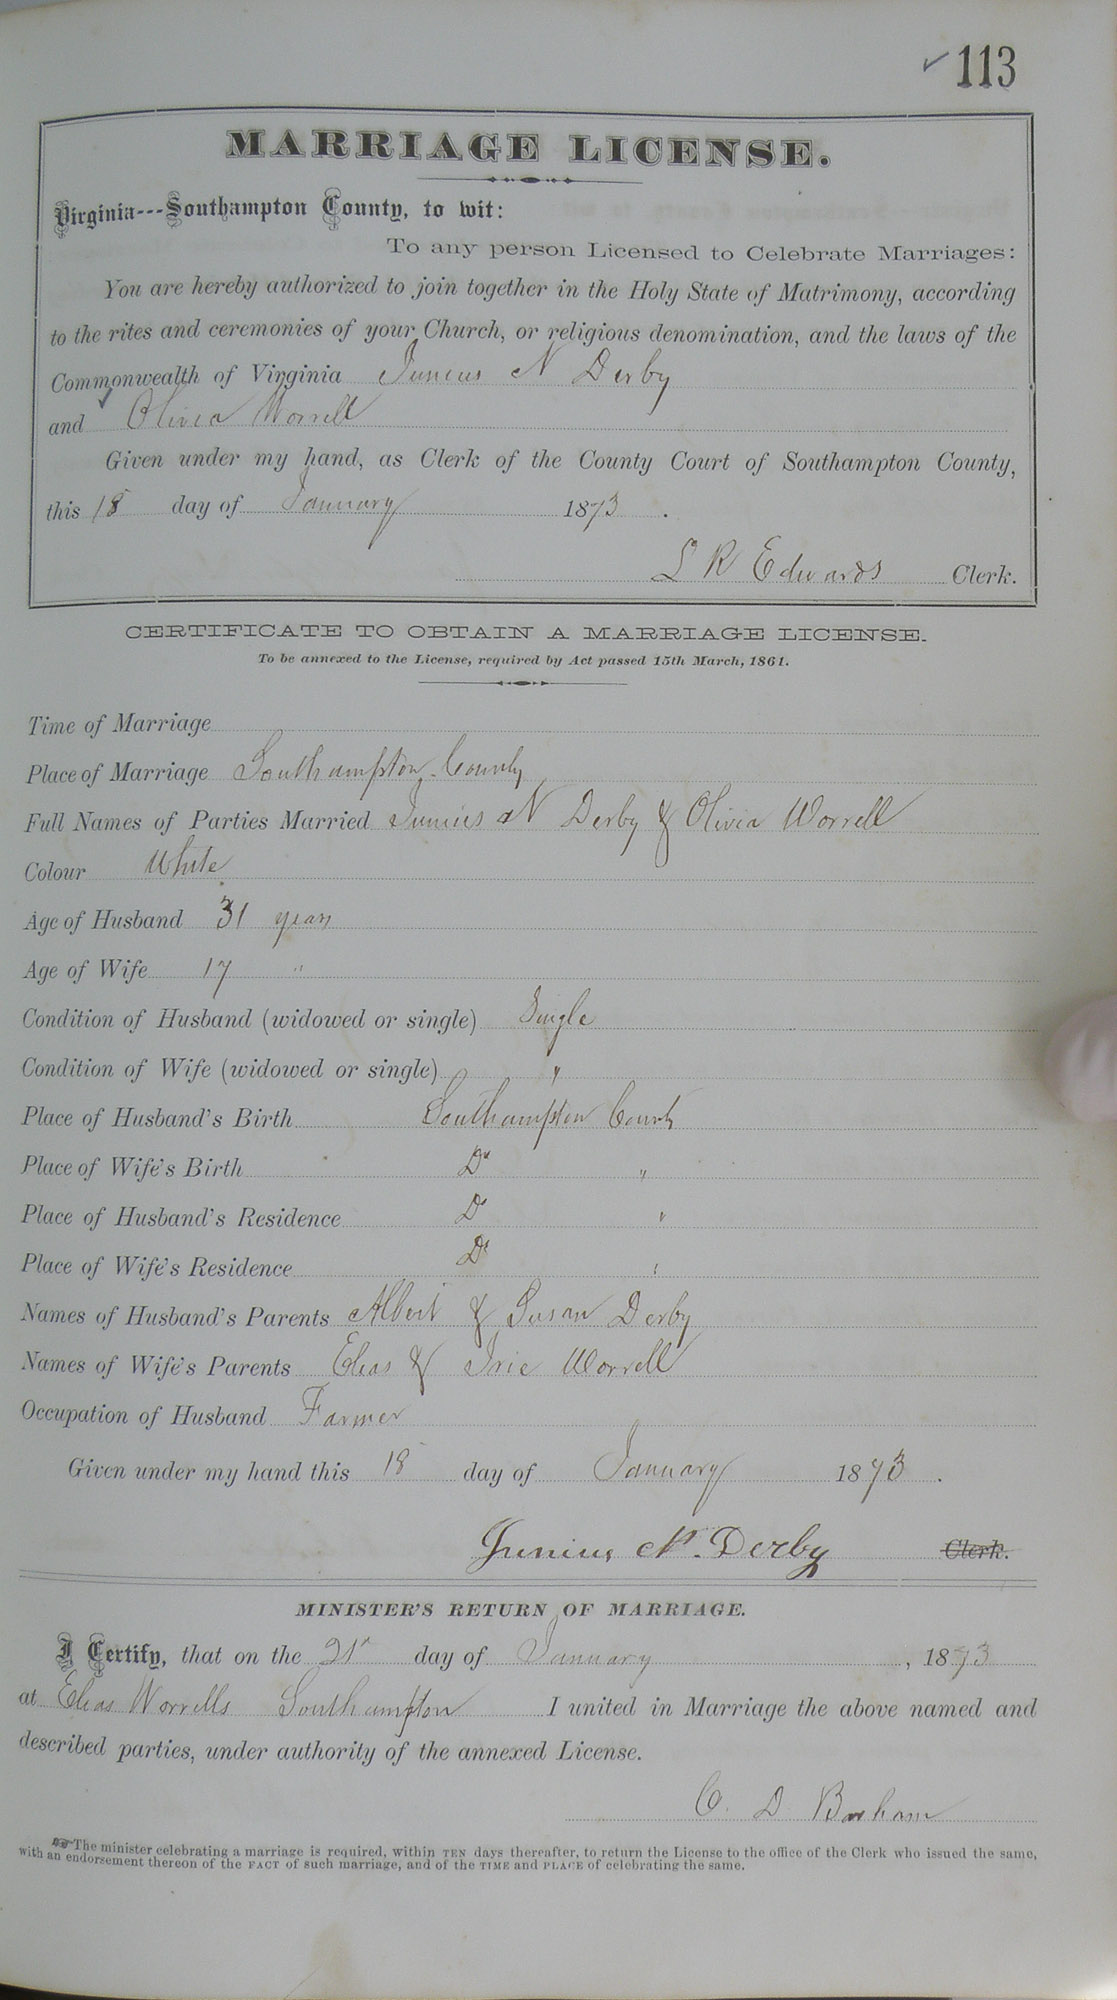 ✓113
MARRIAGE LICENSE.
Virginia---Southampton County, to wit:
To any person Licensed to Celebrate Marriages:
You are hereby authorized to join together in the Holy State of Matrimony, according
to the rites and ceremonies of your Church, or religious denomination, and the laws of the
Commonwealth of Virginia Junius N Derby
and Olivia Worrell
Given under my hand, as Clerk of the County Court of Southampton County,
this 18 day of January 1873.
L R Edwards Clerk.
CERTIFICATE TO OBTAIN A MARRIAGE LICENSE.
To be annexed to the License, required by Act passed 15th March, 1861.
Time of Marriage
Place of Marriage Southampton County
Full Names of Parties Married Junius N Derby & Olivia Worrell
Colour White
Age of Husband 31 years
Age of Wife 17 "
Condition of Husband (widowed or single) Single
Condition of Wife (widowed or single) "
Place of Husband's Birth Southampton County
Place of Wife's Birth Do "
Place of Husband's Residence Do "
Place of Wife's Residence Do "
Names of Husband's Parents Albert & Susan Derby
Names of Wife's Parents Elias & Worrell
Occupation of Husband Farmer
Given under my hand this 18 day of January 1873.
Junius N. Derby Clerk.
MINISTER'S RETURN OF MARRIAGE.
I Certify, that on the 21st day of January, 1873
at Elias Worrells Southampton I united in Marriage the above named and
described parties, under authority of the annexed License.
C. D. Barham
The minister celebrating a marriage is required, within TEN days thereafter, to return the License to the office of the Clerk who issued the same,
with an endorsement thereon of the FACT of such marriage, and of the TIME and PLACE of celebrating the same.